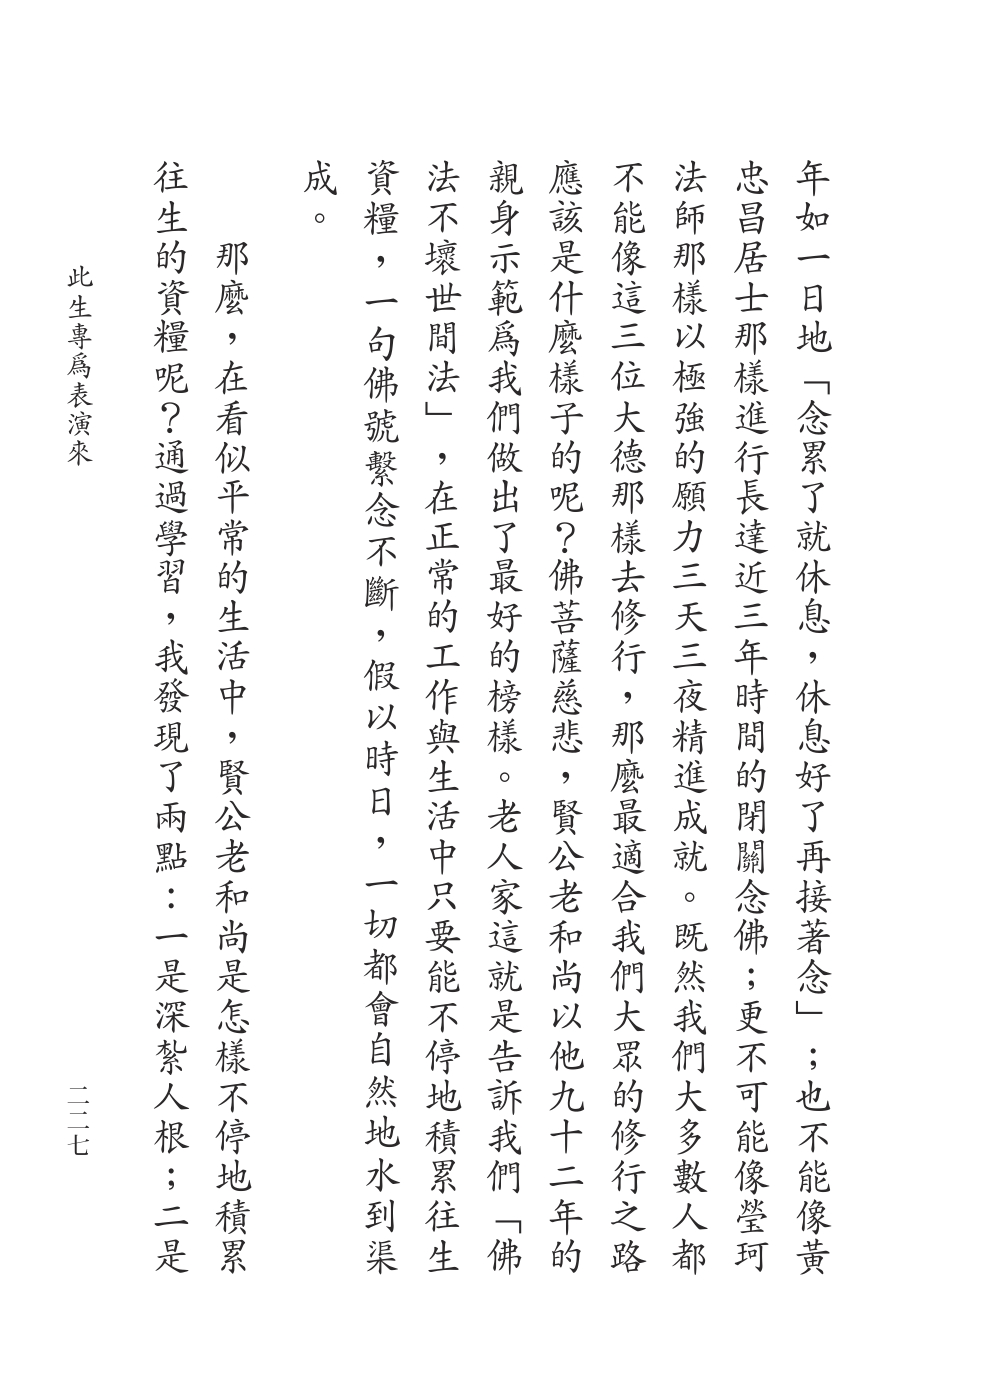 年如一日地「念累了就休息，休息好了再接著念」；也不能像黃
忠昌居士那樣進行長達近三年時間的閉關念佛；更不可能像瑩珂
法師那樣以極強的願力三天三夜精進成就。既然我們大多數人都
不能像這三位大德那樣去修行，那麼最適合我們大眾的修行之路
應該是什麼樣子的呢？佛菩薩慈悲，賢公老和尚以他九十二年的
親身示範爲我們做出了最好的榜樣。老人家這就是告訴我們「佛
法不壞世間法」，在正常的工作與生活中只要能不停地積累往生
資糧，一句佛號繫念不斷，假以時日，一切都會自然地水到渠
成。
那麼，在看似平常的生活中，賢公老和尚是怎樣不停地積累
往生的資糧呢？通過學習，我發現了兩點：一是深紮人根；二是
此生專爲表演來
二二七